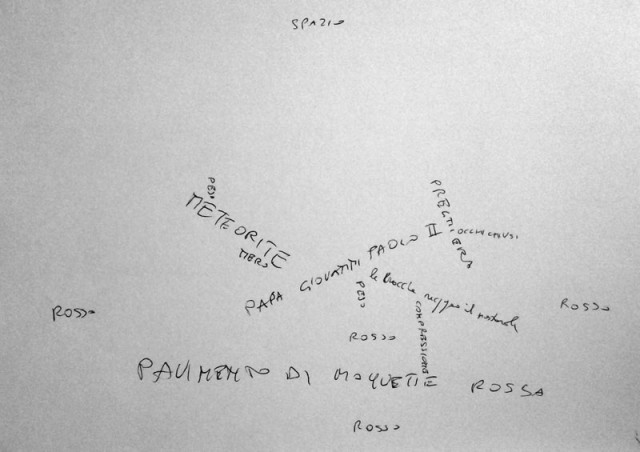 SPAZIO
PESO
METEORITE
NERO
PREGHIERA
OCCHI CHIUSI
PAPA GIOVANNI PAOLO II
PESO
le braccia reggono il pastorale
COMPRESSIONE
ROSSO
ROSSO
ROSSO
PAVIMENTO DI MOQUETTE ROSSA
ROSSO